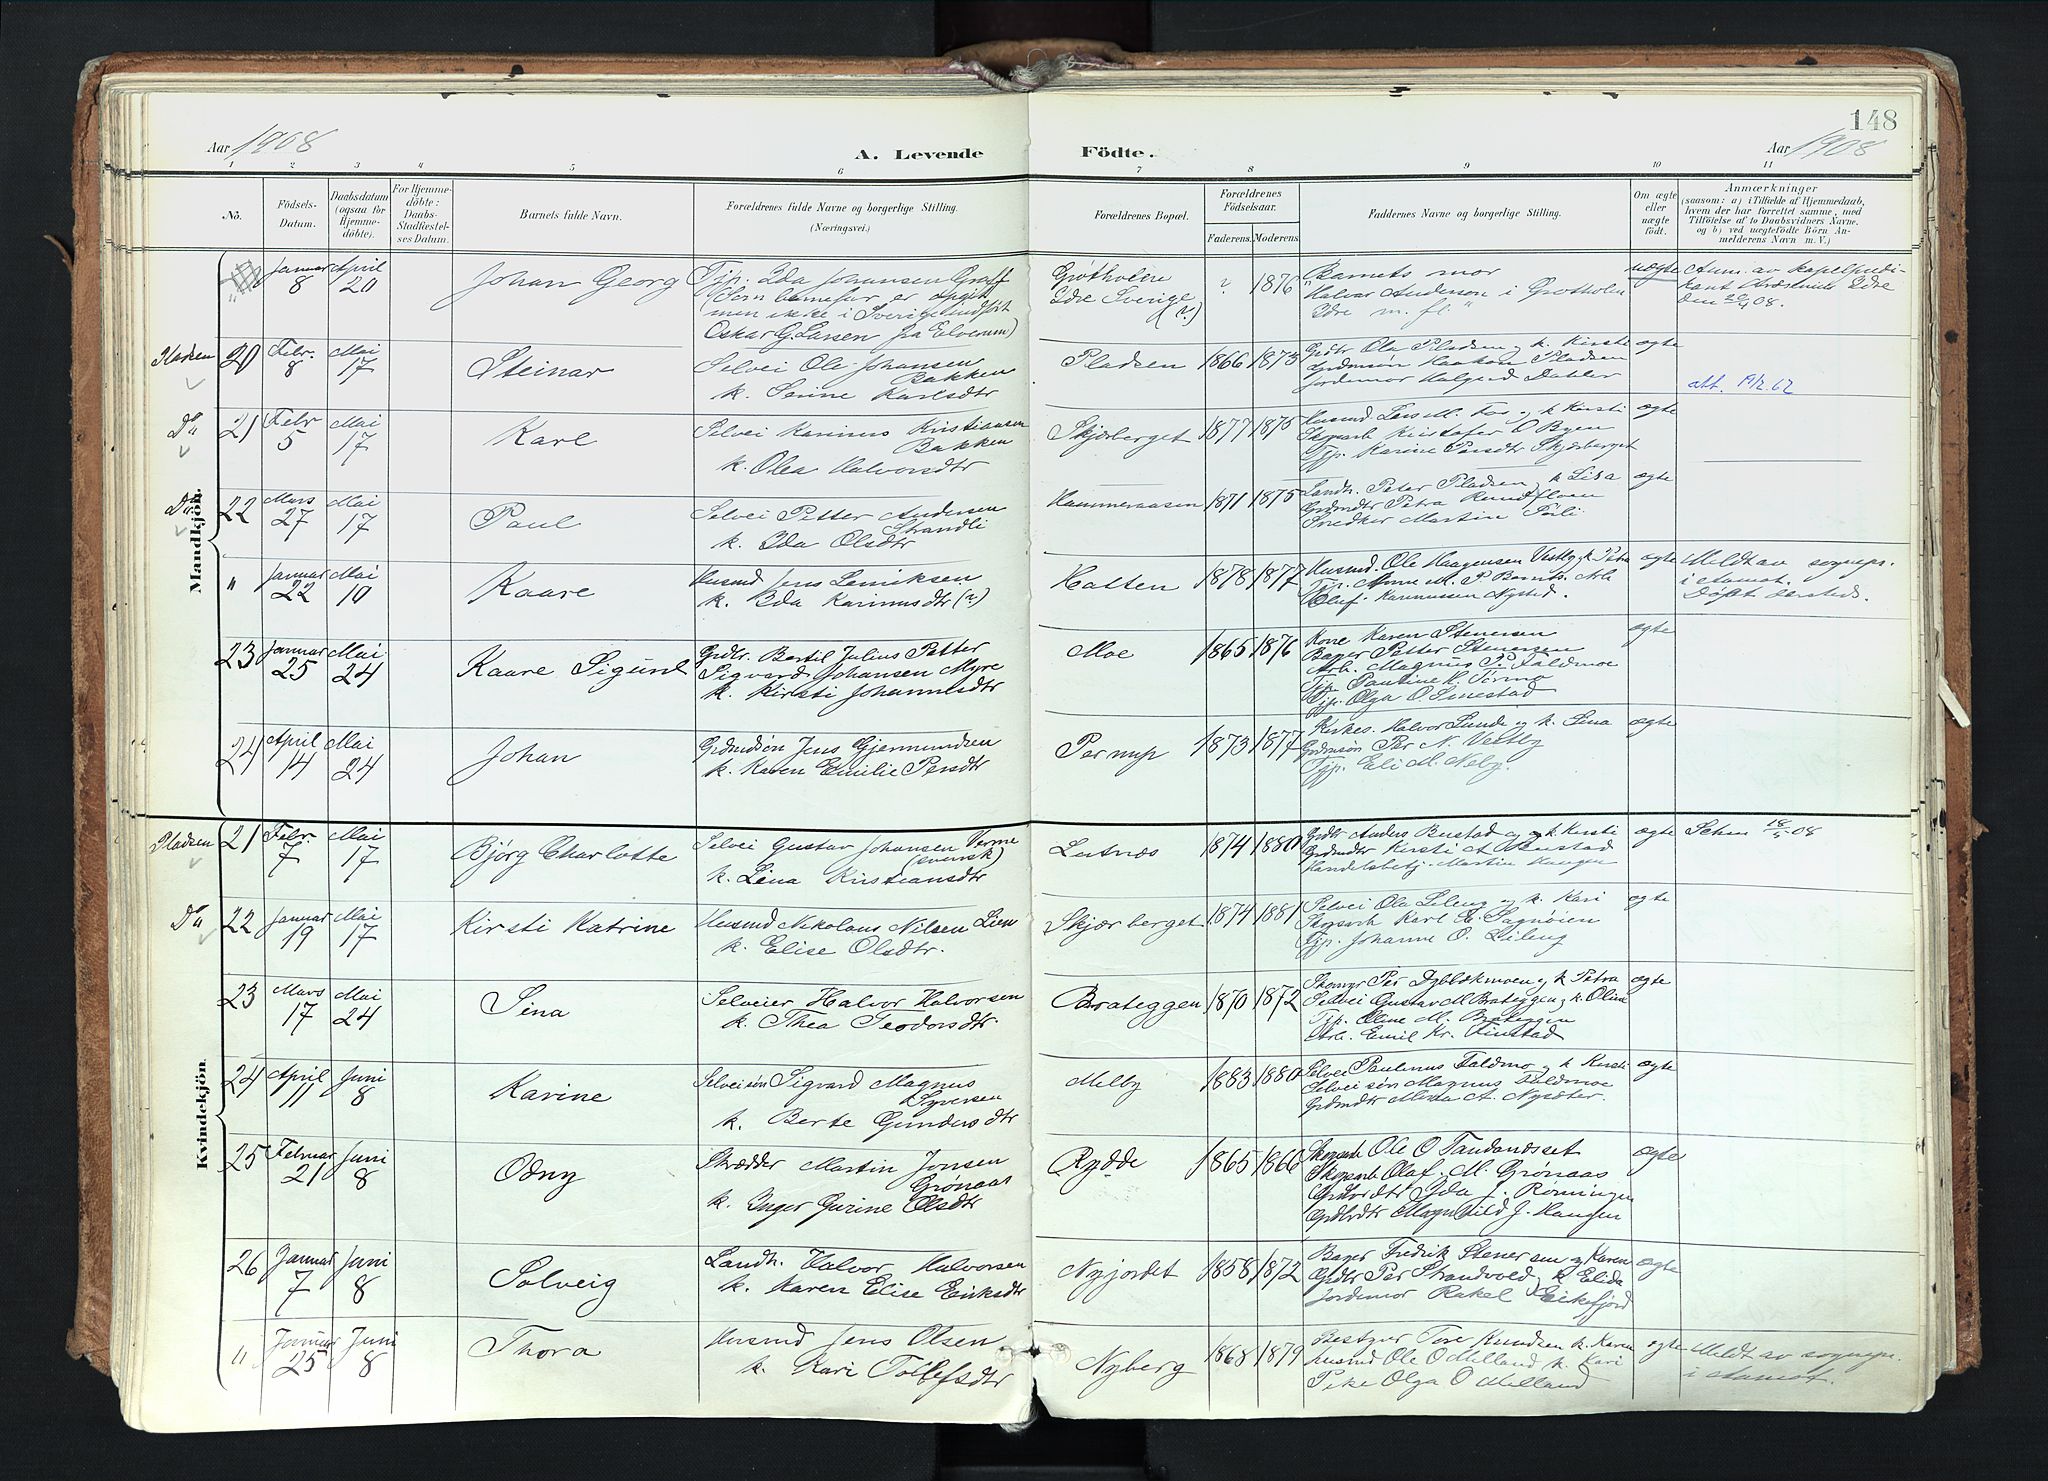 148
Aar 1908
A. Levende Födte.
Aar 1908
1 2 3 4 5 6 7 8 9 10 11
No.
Födsels-
Datum.
Daabsdatum
(ogsaa for
Hjemme-
döbte).
For Hjemme-
döbte:
Daabs-
Stadfæstel-
ses Datum.
Barnets fulde Navn.
Forældrenes fulde Navne og borgerlige Stilling.
(Næringsvei.)
Forældrenes Bopæl.
Forældrenes
Födselsaar.
Faderens. Moderens.
Faddernes Navne og borgerlige Stilling.
Om ægte
eller
uægte
født.
Anmærkninger
(saasom: a) i Tilfælde af Hjemmedaab,
hvem der har forrettet samme, med
Tilföielse af to Daabsvidners Navne,
og b) ved uægtefödte Börn An-
melderens Navn m. V.)
Mandkjön.
" Januar 8 April 20 Johan Georg
Tjp. Ida Johansen Graff
(Som barnefar er opgit
men ikke i Sverige indfört
Oskar G. Larsen fra Elverum)
Grötholen
Idre Sverige
(?)
? 1876
Barnets mor
Halvar Anderson i Grötholen
Idre m. fl.
uægte
Anm. av kapelpredi-
kant Idre
den 20/4 08.
Pladsen 20 Febr. 8 Mai 17 Steinar
Selvei Ole Johansen
Bakken
k. Serine Karlsdtr
Pladsen 1866 1873
Grdbr Ola Pladsen og k. Kirsti
Grdmsön Haakon Pladsen
Jordemor Halgerd Dahler
ægte
att. 19/2.62
Do 21 Febr 5 Mai 17 Karl
Selvei Karinus Kristiansen
Bakken
k. Olea Halvorsdtr
Skjærberget 1877 1875
Husmd Lars M. Fos og k Kirsti
Skogarb Kristofer O Byen
Tjp. Karine Larsdtr Skjærberget
ægte
Do 22 Mars 27 Mai 17 Paul
Selvei Petter Andersen
Strandli
k. Ida Olsdtr
Hammeraasen 1871 1875
Landh. Peter Pladsen og k Lisa
Grdmdtr Petra Rundfloen
Snedker Martin Törli
ægte
" Januar 22 Mai 10 Kaare
Husmd Jens Leniksen
k. Ida Karinusdtr (?)
Hatten 1878 1877
Husmd. Ole Haagensen Vestby k. Petra
Tjp. Anne M. P. Barnts. Arb
Oluf Rasmussen Nysted.
ægte
Meldt av sognepr.
i Aamot.
Döpt dersteds.
23 Januar 25 Mai 24 Kaare Sigurd
Grdbr. Bertil Julius Petter
Sigvard Johansen Myre
k. Kirsti Johannesdtr
Moe 1865 1876
Kone Karen Stenersen
Bager Petter Stenersen
Arb. Magnus P. Faldmoe
Tjp. Pauline K. Tørmo
Tjp. Olga O. Smestad
ægte
24 April 14 Mai 24 Johan
Grdmdsön Jens Gjermundsen
k. Karen Emilie Persdtr
Pernup 1873 1877
Kirkes. Halvor Lunde og k. Lina
Grdmsön Per N. Vestby
Tjp. Eli M. Neby.
ægte
Kvindekjön.
Pladsen 21 Febr. 7 Mai 17 Björg Charlotte
Selvei Gustav Johansen Verme
(svensk)
k. Lina Kristiansdtr
Lutnæs 1874 1880
Grdbr Anders Berstad og k. Kirsti
Grdmdtr Kirsti A Berstad
Handelsbetj. Martin Haugen
ægte
18/5 08
Do 22 Januar 19 Mai 17 Kirsti Katrine
Husmd Nikolaus Nilsen Lien
k. Elise Olsdtr.
Skjærberget 1874 1881
Selvei Ola Lileng og k. Kari
Skogarb Karl E. Sagnöien
Tjp. Johanne O. Lileng
ægte
23 Mars 17 Mai 24 Sina
Selveier Halvor Halvorsen
k. Thea Teodorsdtr.
Brateggen 1870 1872
Skomgr Per Dyblækmoen og k Petra
Selvei Gustav M. Brateggen og k. Oline
Tjp. Oline M. Brateggen
Arb. Emil Kr. Finstad
ægte
24 April 11 Juni 8 Karine
Selveisön Sigvard Magnus
Syversen
k. Berte Gundersdtr
Melby 1883 1880
Selvei Paulinus Faldmo og k Kirsti
Selveisön Magnus Faldmoe
Grdmdtr Mina A. Nysæter.
ægte
25 Februar 21 Juni 8 Odny
Skrædder Martin Jonsen
Grönaas
k. Inger Gurine Olsdtr
Rydde 1865 1866
Skogarb Ole O Tandandsset
Skogarb Olaf M. Grönaas
Grdbrdtr Ida J. Rönningen
Grdbrdtr Magnhild J. Haugen
ægte
26 Januar 7 Juni 8 Solveig
Landh. Halvor Halvorsen
k. Karen Elise Eriksdtr
Nyjordet 1858 1872
Bager Fredrik Stenersen og Karen
Grdbr Per Strandvold, k. Elida
Jordemor Rakel Eikefjord
ægte
" Januar 25 Juni 8 Thora
Husmd Jens Olsen
k. Kari Tollefsdtr
Nyberg 1868 1879
Bestyrer Tore Knudsen k. Karen
Husmd Ole O Melland k. Kari
Pike Olga O Melland
ægte
Meldt av sognepr.
i Aamot.